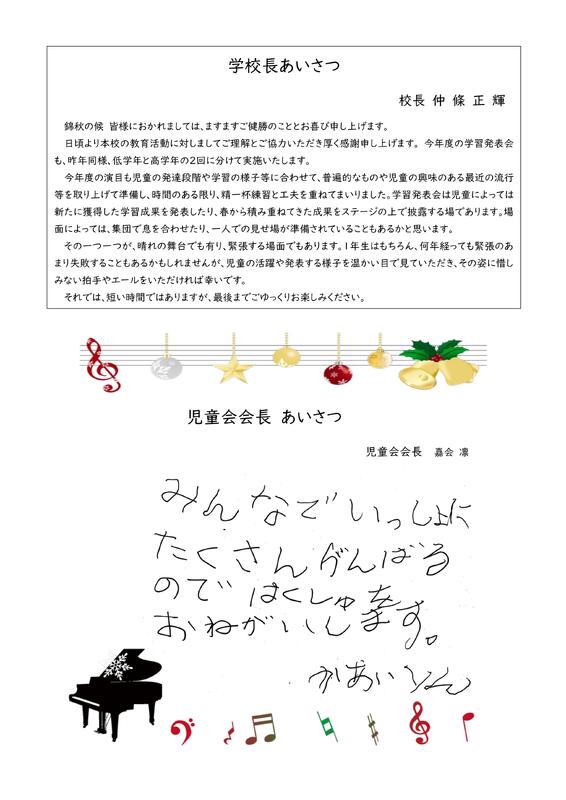 学校長あいさつ
校長 仲 條 正 輝
錦秋の候 皆様におかれましては、ますますご健勝のこととお喜び申し上げます。
日頃より本校の教育活動に対しましてご理解とご協力いただき厚く感謝申し上げます。 今年度の学習発表会
も、昨年同様、低学年と高学年の2回に分けて実施いたします。
今年度の演目も児童の発達段階や学習の様子等に合わせて、普遍的なものや児童の興味のある最近の流行
等を取り上げて準備し、時間のある限り、精一杯練習と工夫を重ねてまいりました。学習発表会は児童によっては
新たに獲得した学習成果を発表したり、春から積み重ねてきた成果をステージの上で披露する場であります。場
面によっては、集団で息を合わせたり、一人での見せ場が準備されていることもあるかと思います。
その一つ一つが、晴れの舞台でも有り、緊張する場面でもあります。1年生はもちろん、何年経っても緊張のあ
まり失敗することもあるかもしれませんが、児童の活躍や発表する様子を温かい目で見ていただき、その姿に惜し
みない拍手やエールをいただければ幸いです。
それでは、短い時間ではありますが、最後までごゆっくりお楽しみください。
児童会会長 あいさつ
児童会会長 嘉会 凛
みんなでいっしょに
たくさんがんばる
のではくしゅを
おねがいします。
かあいりん